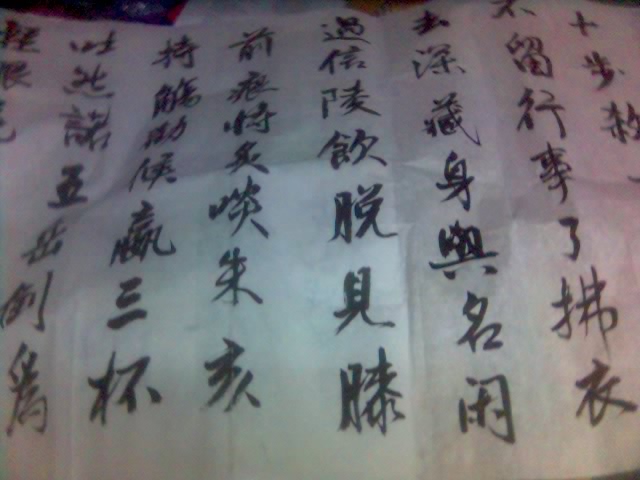 十步殺一
不留行事了拂衣
去深藏身與名閑
過信陵飲脱見膝
前痕将炙啖朱亥
持觴劝候嬴三杯
吐然諾五岳倒爲
輕眼